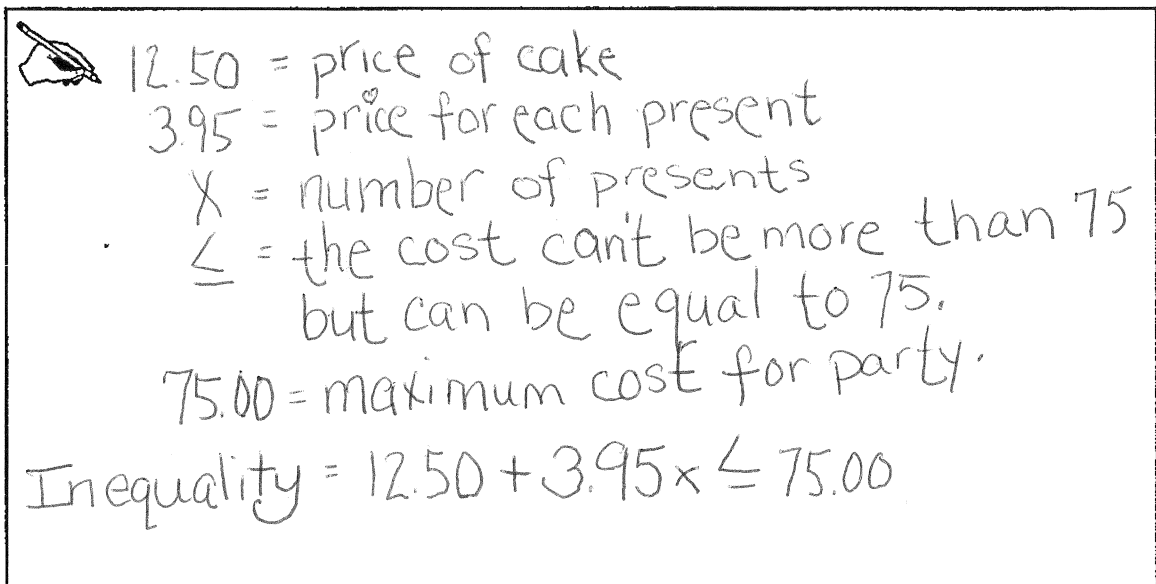 12.50 = price of cake
3.95 = price for each present
X = number of presents
≤ = the cost can't be more than 75
but can be equal to 75.
75.00 = maximum cost for party.
Inequality = 12.50 + 3.95x ≤ 75.00